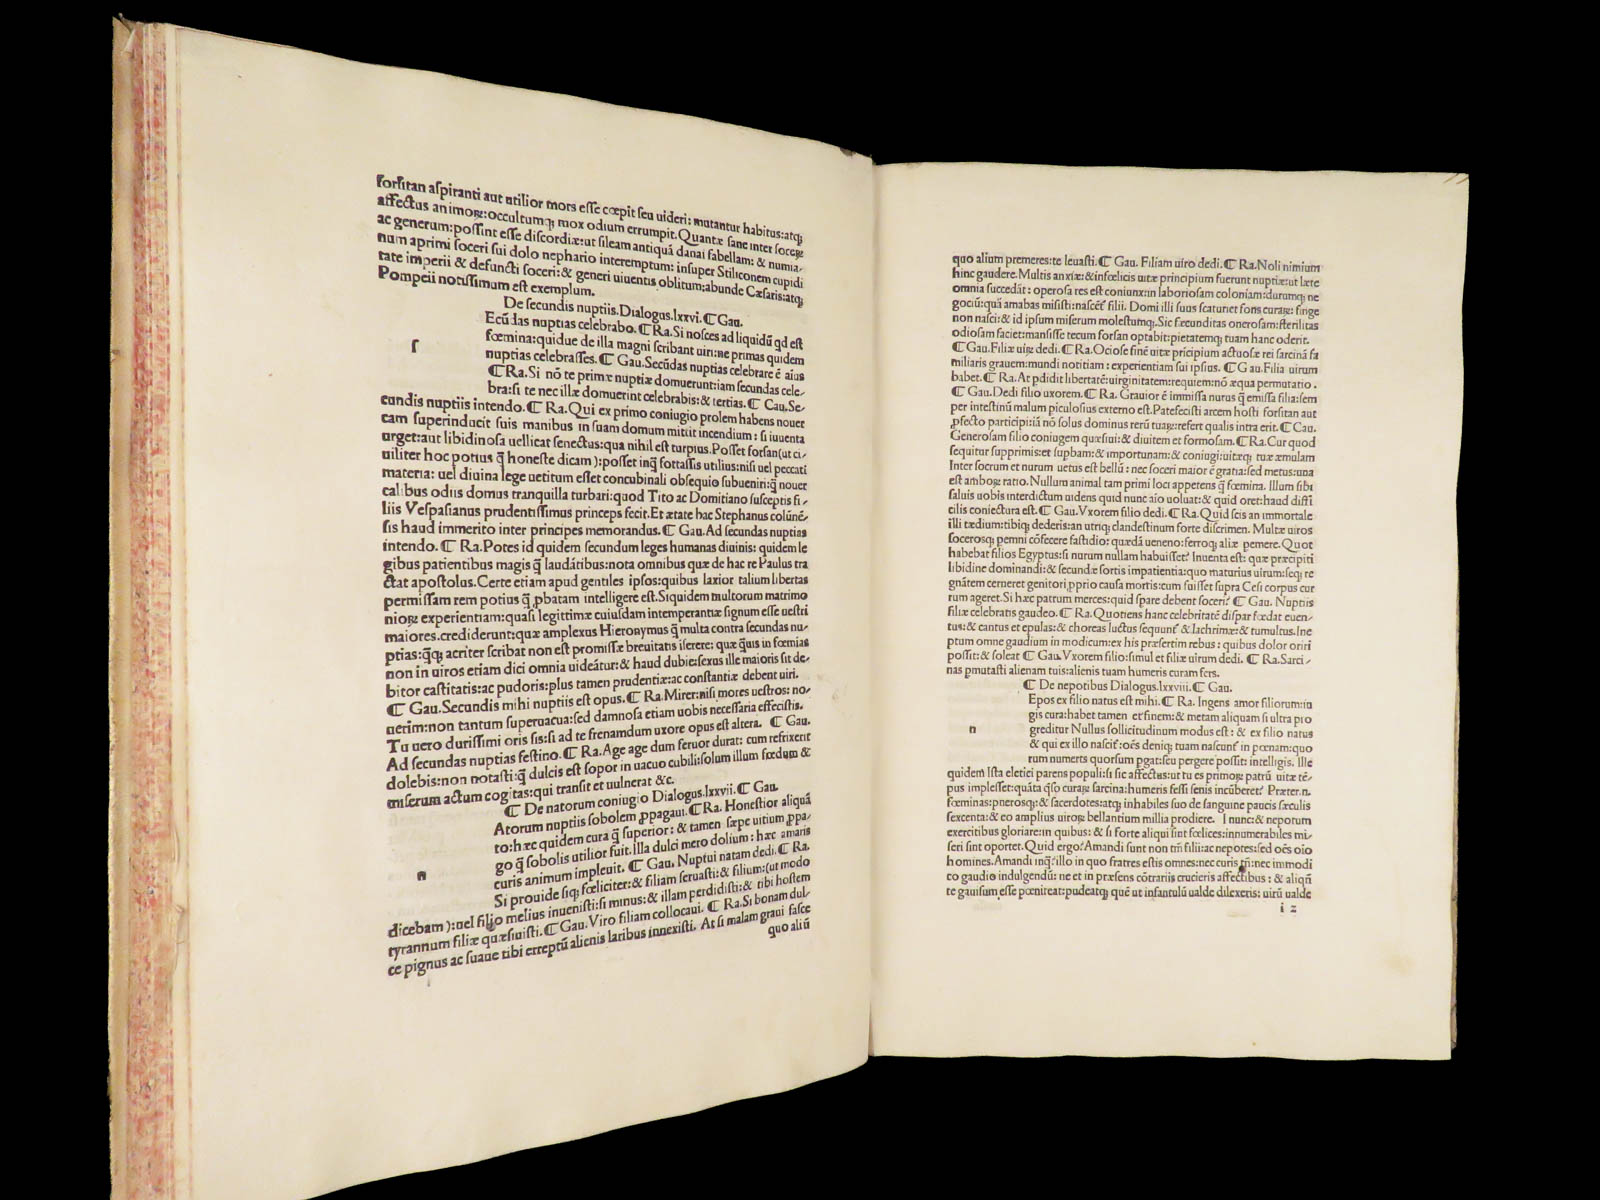 forſitan aſpiranti aut utilior mors eſſe cœpit ſeu uideri: mutantur habitus:atq;
affectus animoꝝ:occultumq; mox odium errumpit. Quantæ ſane inter ſoceꝝ
ac generum:poſſint eſſe diſcordiæ:ut ſileam antiquā danai fabellam: & numia-
num aprimi ſoceri ſui dolo nephario interemptum: inſuper Stiliconem cupidi
tate imperii & defuncti ſoceri:& generi uiuentis oblitum;abunde Cæſaris:atq;
Pompeii notiſſimum eſt exemplum.
De ſecundis nuptiis.Dialogus.lxxvi. ℂ Gau.
Ecūdas nuptias celebrabo. ℂ Ra. Si noſces ad liquidū qd eſt
ſ
fœmina:quidue de illa magni ſcribant uiri:ne primas quidem
nuptias celebraſſes. ℂ Gau.Secūdas nuptias celebrare ē aius
ℂ Ra. Si nō te primæ nuptiæ domuerunt:iam ſecundas cele-
bra:ſi te nec illæ domuerint celebrabis:& tertias. ℂ Cau.Se-
cundis nuptiis intendo. ℂ Ra. Qui ex primo coniugio prolem habens nouer
cam ſuperinducit ſuis manibus in ſuam domum mittit incendium : ſi iuuenta
urget:aut libidinoſa uellicat ſenectus:qua nihil eſt turpius.Poſſet forſan(ut ci-
uiliter hoc potius q̄ honeſte dicam):poſſet inq̄ fortaſſis utilius:niſi uel peccati
materia: uel diuina lege uetitum eſſet concubinali obſequio ſubueniri:q̄ nouer
calibus odiis domus tranquilla turbari:quod Tito ac Domitiano ſuſceptis fi-
liis Veſpaſianus prudentiſſimus princeps fecit.Et ætate hac Stephanus colūnē-
ſis haud immerito inter principes memorandus. ℂ Gau.Ad ſecundas nuptias
intendo. ℂ Ra.Potes id quidem ſecundum leges humanas diuinis: quidem le
gibus patientibus magis q̄ laudātibus:nota omnibus quæ de hac re Paulus tra
ctat apoſtolus.Certe etiam apud gentiles ipſos:quibus laxior talium libertas
permiſſam rem potius q̄ ꝓbatam intelligere eſt.Siquidem multorum matrimo
nioꝝ experientiam:quaſi legittimæ cuiuſdam intemperantiæ ſignum eſſe ueſtri
maiores.crediderunt:quæ amplexus Hieronymus q̄ multa contra ſecundas nu-
ptias:q̄q; acriter ſcribat non eſt promiſſæ breuitatis iſerere: quæ q̄uis in fœmias
non in uiros etiam dici omnia uideātur:& haud dubie:ſexus ille maioris ſit de-
bitor caſtitatis:ac pudoris:plus tamen prudentiæ:ac conſtantiæ debent uiri.
ℂ Gau.Secundis mihi nuptiis eſt opus. ℂ Ra. Mirer:niſi mores ueſtros: no-
uerim:non tantum ſuperuacua:ſed damnoſa etiam uobis neceſſaria effeciſtis.
Tu uero duriſſimi oris ſis:ſi ad te frenandum uxore opus eſt altera. ℂ Gau.
Ad ſecundas nuptias feſtino. ℂ Ra. Age age dum feruor durat: cum refrixerit
dolebis:non notaſti:q̄ dulcis eſt ſopor in uacuo cubili:ſolum illum fœdum &
miſerum actum cogitas:qui tranſit et uulnerat &c.
ℂ De natorum coniugio Dialogus.lxxvii. ℂ Gau.
Atorum nuptiis ſobolem ꝓpagaui. ℂ Ra. Honeſtior aliquā
to:hæc quidem cura q̄ ſuperior: & tamen ſæpe uitium ꝓpa-
n
go q̄ ſobolis utilior fuit.Illa dulci mero dolium: hæc amaris
curis animum impleuit. ℂ Gau. Nuptui natam dedi. ℂ Ra.
Si prouide ſiq; fœliciter:& filiam ſeruaſti:& filium:(ut modo
dicebam):uel filio melius inueniſti:ſi minus:& illam perdidiſti:& tibi hoſtem
tyrannum filiæ quæſiuiſti. ℂ Gau. Viro filiam collocaui. ℂ Ra.Si bonam dul-
ce pignus ac ſuaue tibi erreptū alienis laribus innexiſti. At ſi malam graui faſce
quo aliū
quo alium premeres:te leuaſti. ℂ Gau. Filiam uiro dedi. ℂ Ra.Noli nimium
hinc gaudere.Multis anxiæ:& infœlicis uitæ principium fuerunt nuptiæ:ut læte
omnia ſuccedāt: operoſa res eſt coniunx:in laborioſam coloniam:durumq; ne
gociū:quā amabas miſiſti:naſcēt filii. Domi illi ſuus ſcaturiet fons curaꝝ: finge
non naſci:& id ipſum miſerum moleſtumq;.Sic fæcunditas oneroſam:ſterilitas
odioſam faciet:manſiſſe tecum forſan optabit:pietatemq; tuam hanc oderit.
ℂ Gau.Filiæ uiꝝ dedi. ℂ Ra. Ocioſe finē uitæ pricipium actuoſæ rei ſarcinā fa
miliaris grauem:mundi notitiam: experientiam ſui ipſius. ℂ Gau.Filia uirum
habet. ℂ Ra. At pdidit libertatē:uirginitatem:requiem:nō æqua permutatio.
ℂ Gau. Dedi filio uxorem. ℂ Ra. Grauior ē immiſſa nurus q̄ emiſſa filia:ſem
per inteſtinū malum piculoſius externo eſt.Patefeciſti arcem hoſti forſitan aut
ꝓfecto participi:iā nō ſolus dominus rerū tuaꝝ:refert qualis intra erit. ℂ Cau.
Generoſam filio coniugem quæſiui:& diuitem et formoſam. ℂ Ra. Cur quod
ſequitur ſupprimis:et ſupbam:& importunam:& coniugi:uitæq; tuæ æmulam
Inter ſocrum et nurum uetus eſt bellū: nec ſoceri maior ē gratia:ſed metus:una
eſt amboꝝ ratio. Nullum animal tam primi loci apperens q̄ fœmina. Illum ſibi
ſaluis uobis interdictum uidens quid nunc aio uoluat:& quid oret:haud diffi
cilis coniectura eſt. ℂ Gau. Vxorem filio dedi. ℂ Ra. Quid ſcis an immortale
illi tædium:tibiq; dederis:an utriq; clandeſtinum forte diſcrimen. Multæ uiros
ſoceroſq; pemni cōfecere faſtidio: quædā ueneno:ferroq; aliæ pemere. Quot
habebat filios Egyptus:ſi nurum nullam habuiſſet? Inuenta eſt: quæ præcipiti
libidine dominandi:& ſecundæ ſortis impatientia:quo maturius uirum:ſeq; re
gnātem cerneret genitori ꝓprio cauſa mortis:cum fuiſſet ſupra Ceſi corpus cur
rum ageret.Si hæc patrum merces:quid ſpare debent ſoceri? ℂ Gau. Nuptiis
filiæ celebratis gaudeo. ℂ Ra. Quotiens hanc celebritatē diſpar fœdat euen-
tus:& cantus et epulas:& choreas luctus ſequunt & lachrimæ:& tumultus.Ine
ptum omne gaudium in modicum:ex his præſertim rebus: quibus dolor oriri
poſſit:& ſoleat ℂ Gau.Vxorem filio:ſimul et filiæ uirum dedi. ℂ Ra.Sarci-
nas pmutaſti alienam tuis:alienis tuam humeris curam fers.
ℂ De nepotibus Dialogus.lxxviii. ℂ Gau.
Epos ex filio natus eſt mihi. ℂ Ra. Ingens amor filiorum:in
gis cura:habet tamen et finem:& metam aliquam ſi ultra pro
n
greditur Nullus ſollicitudinum modus eſt: & ex filio natus
& qui ex illo naſcit:oēs deniq; tuam naſcunt in pœnam:quo
rum numerts quorſum pgat:ſeu pergere poſſit: intelligis. Ille
quidem Iſta eletici parens populi:ſi ſic affectus:ut tu es primoꝝ patrū uitæ tē-
pus impleſſet:quāta q̄ſo curaꝝ ſarcina:humeris feſſi ſenis incūberet? Præter.n.
fœminas:pueroſq;:& ſacerdotes:atq; inhabiles ſuo de ſanguine paucis ſæculis
ſexcenta:& eo amplius uiroꝝ bellantium millia prodiere. I nunc:& nepotum
exercitibus gloriare:in quibus:& ſi forte aliqui ſint fœlices:innumerabiles mi-
ſeri ſint oportet. Quid ergo? Amandi ſunt non tm̄ filii:ac nepotes:ſed oēs oīo
homines.Amandi inq̄:illo in quo fratres eſtis omnes:nec curis tn̄:nec immodi
co gaudio indulgendū: ne et in præſens cōtrariis crucieris affectibus: & aliqn̄
te gauiſum eſſe pœniteat:pudeatq; quē ut infantulū ualde dilexeris: uirū ualde
i 2